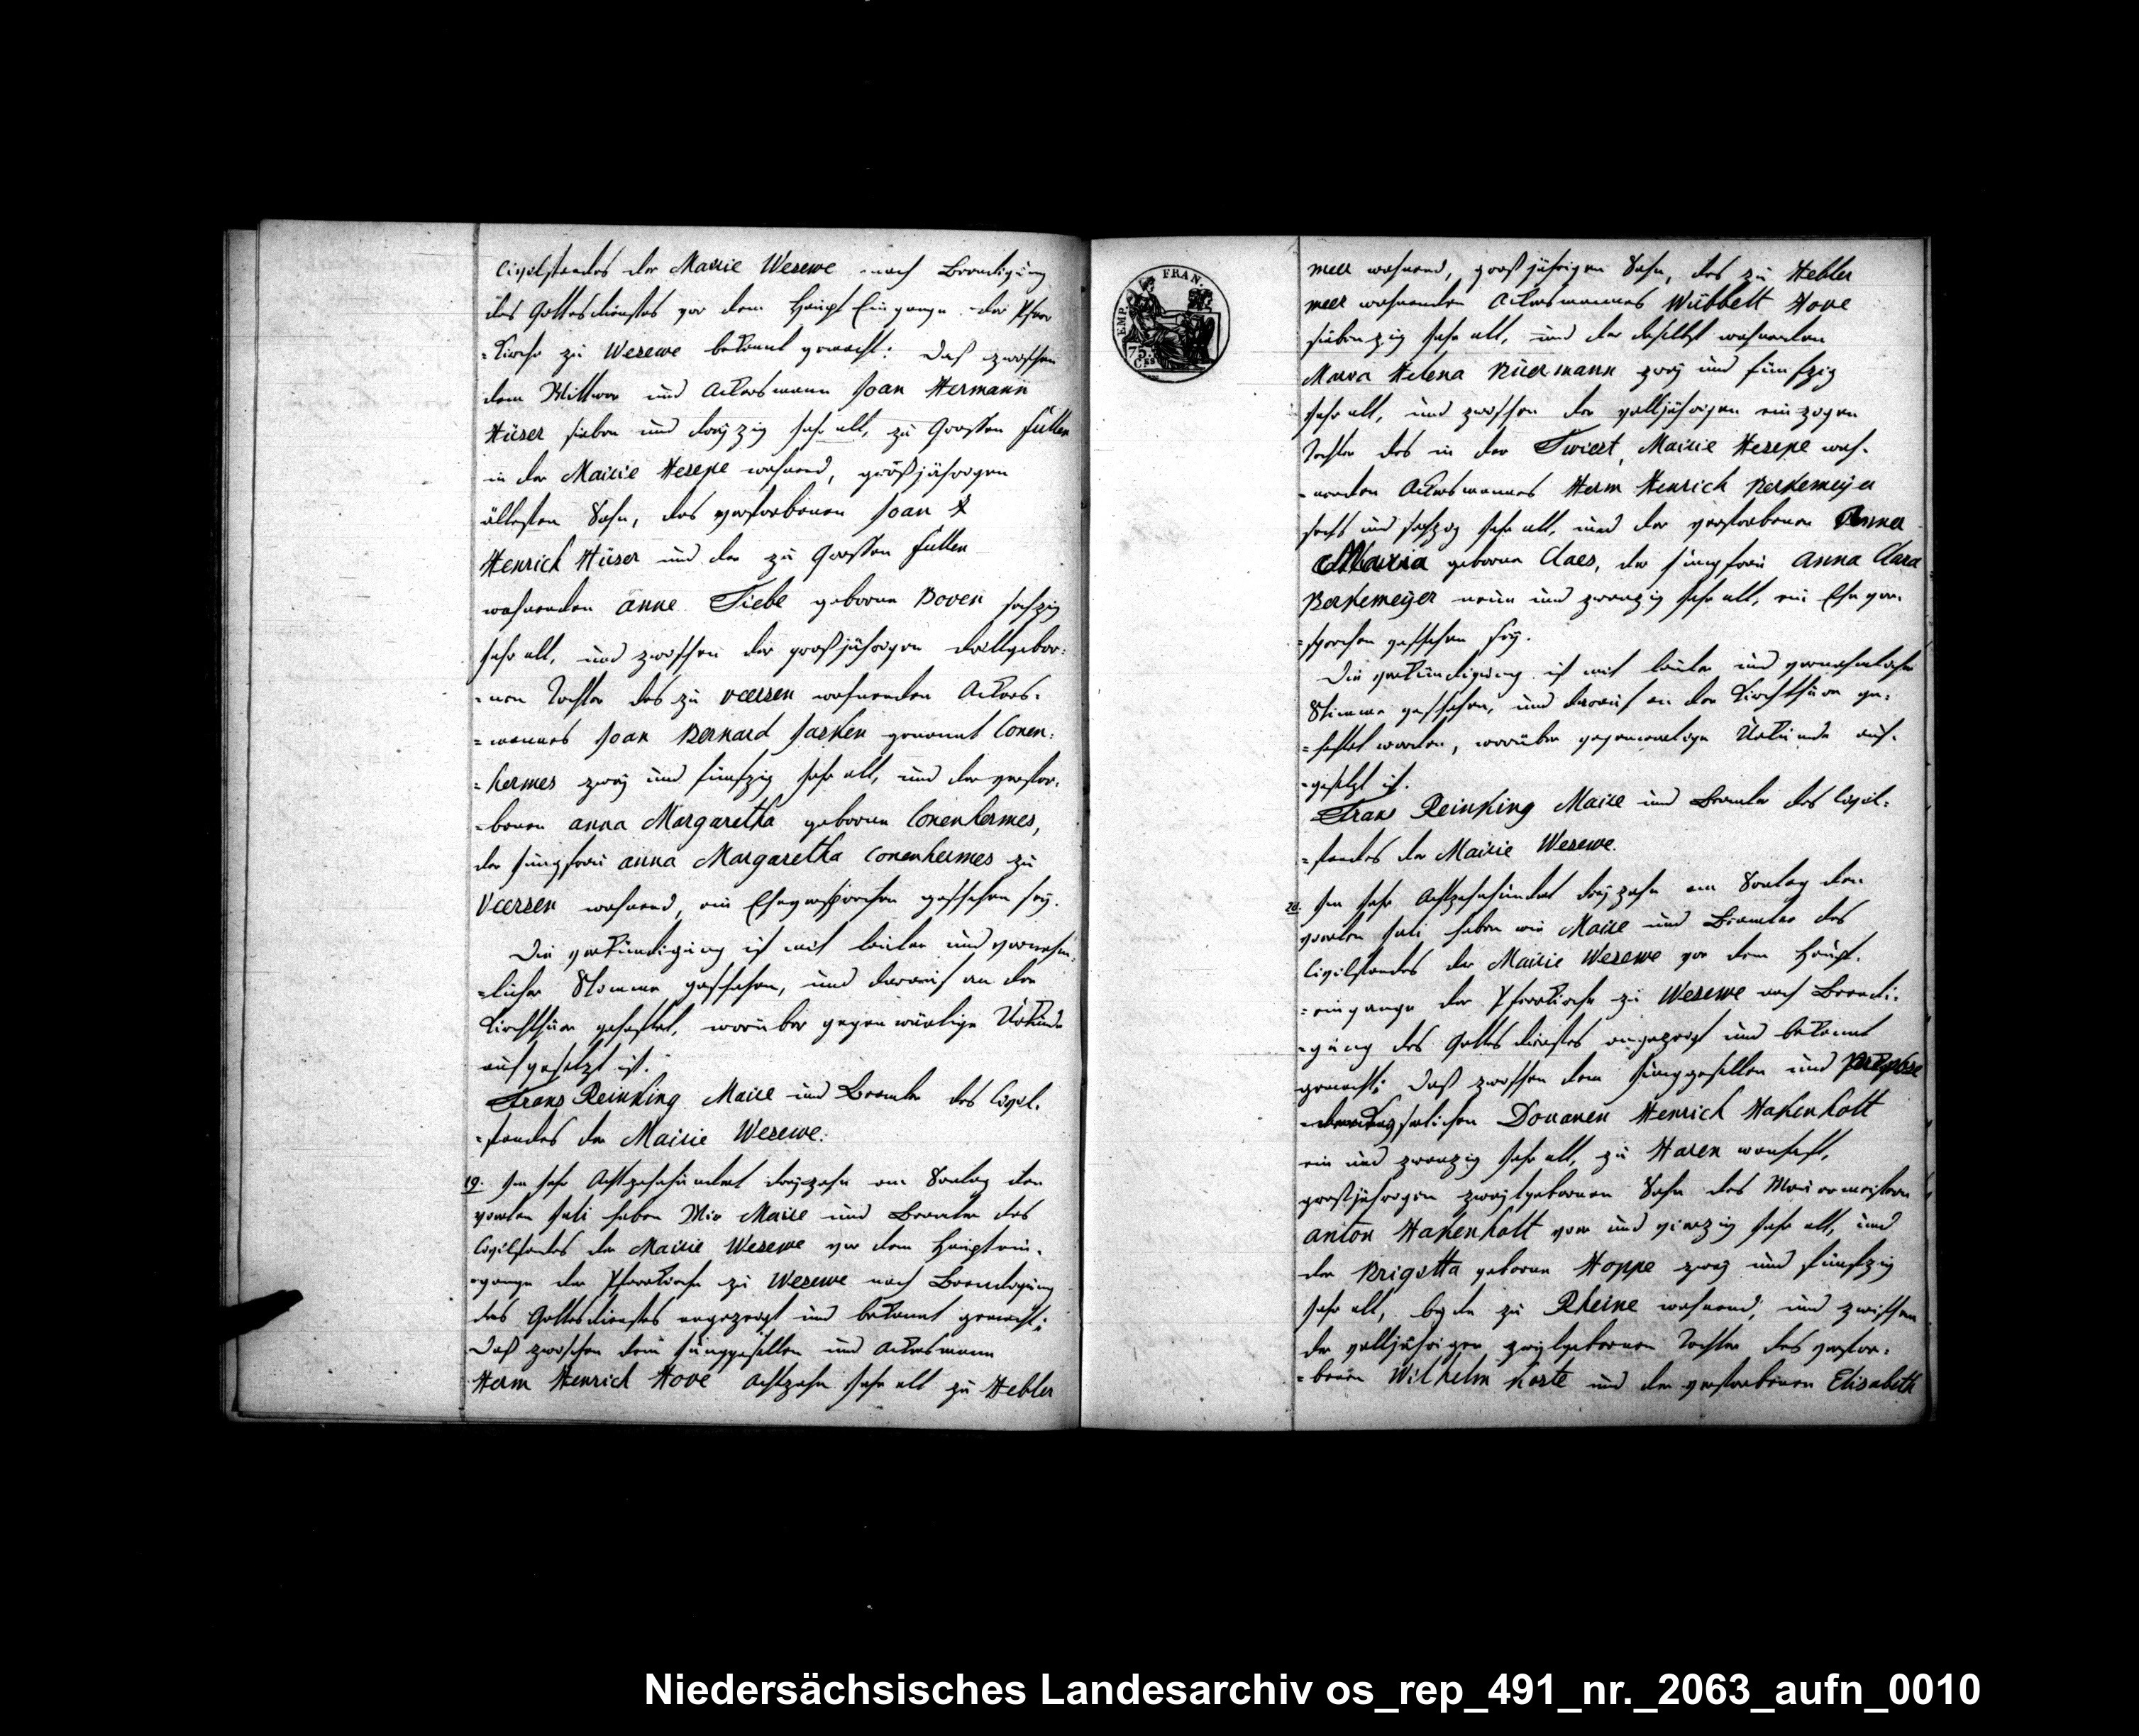 Civilstandes der Mairie Wesewe nach Beendigung
des Gottesdienstes vor dem Haupt Eingange der Pfarr
=Kirche zu Wesewe bekannt gemacht: Daß zwischen
dem Wittwer und Ackersmann Joan Hermann
Hüser sieben und dreyzig Jahr alt, zu Grossen Füllen
in der Mairie Hesepe wohnend, großjährigen
ältesten Sohn, des verstorbenen Joan
Henrich Hüser und der zu Grossen Füllen
wohnenden Anne Tiebe geborne Boven sechzig
Jahr alt, und zwischen der großjährigen drittgebor=
=nen Tochter des zu Veersen wohnenden Ackers=
=mannes Joan Bernard Jasken genannt Conen=
=hermes zwey und fünfzig Jahr alt, und der verstor=
=benen Anna Margaretha geborne Conenhermes,
der Jungfrau Anna Margaretha Conenhermes zu
Veersen wohnend, ein Eheversprechen geschehen sey.
Die Verkündigung ist mit lauter und vernehm=
=licher Stimme geschehen, und darauf an der
Kirchthüre geheftet, worüber gegenwärtige Urkunde
aufgesetzt ist.
Franz Reinking Maire und Beamter des Civil=
=standes der Mairie Wesewe.
19. Im Jahr Achtzehnhundert dreyzehn am Sontag den
vierten Juli haben Wir Maire und Beamter des
Civilstandes der Mairie Wesewe vor dem Hauptein=
=gange der Pfarrkirche zu Wesewe nach Beendigung
des Gottesdienstes angezeigt und bekannt gemacht;
Daß zwischen dem Junggesellen und Ackersmann
Herm Henrich Hove Achtzehn Jahr alt zu Hebler
FRAN.
EMP.
75.
C.ES
meer wohnend, großjährigen Sohn, des zu Hebler
meer wohnenden Ackersmannes Wübbelt Hove
siebenzig Jahr alt, und der daselbst wohnenden
Maria Helena Büermann zwey und fünfzig
Jahr alt, und zwischen der volljährigen einzigen
Tochter des in der Twiest, Mairie Hesepe woh=
=nenden Ackersmannes Herm Henrich Berkemeyer
sechs und sechzig Jahr alt, und der verstorbenen Anna
Maria geborne Claes, der Jungfrau Anna Clara
Berkemeyer neun und zwanzig Jahr alt, ein Ehever=
=sprechen geschehen sey.
Die Verkündigung ist mit lauter und vernehmlicher
Stimme geschehen, und darauf an der Kirchthüre ge=
=heftet worden, worüber gegenwärtige Urkunde auf=
=gesetzt ist.
Franz Reinking Maire und Beamter des Civil=
=standes der Mairie Wesewe.
20. Im Jahr Achtzehnhundert dreyzehn am Sontag den
vierten Juli haben wir Maire und Beamter des
Civilstandes der Mairie Wesewe vor dem Haupt=
=eingange der Pfarrkirche zu Wesewe nach Beendi=
=gung des Gottesdienstes angezeigt und bekannt
gemacht; Daß zwischen dem Junggesellen und Prepose
Douanen Henrich Hakenholt
ein und zwanzig Jahr alt, zu Haren wonhaft,
großjährigen zweytgebornen Sohn des Mauermeistern
Anton Hakenholt vier und vierzig Jahr alt, und
der Brigitta geborne Hoppe zwey und fünfzig
Jahr alt, beyde zu Rheine wohnend; und zwischen
der volljährigen zweytgebornen Tochter des verstor=
=benen Wilhelm Korte und der verstorbenen Elisabeth
Niedersächsisches Landesarchiv os_rep_491_nr._2063_aufn_0010